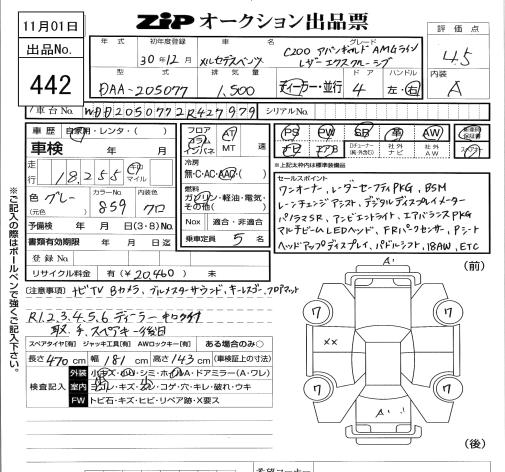 11月01日
ZIP オークション出品票
出品No.
442
年式
初年度登録
車名
グレード
30年12月
メルセデスベンツ
C200 アバンギャルド AMGライン
レザーエクスクルーシブ
型式
排気量
ドア
ハンドル
DAA-205077
1,500
ディーラー・並行
4
左・右
評価点
4.5
内装
A
車台No.
WDD2050772R427979
シリアルNo.
車歴
自家用・レンタ・( )
車検 年 月
走行
18,255
km
マイル
色
グレー
(元色)
カラーNo.
859
内装色
クロ
予備検 年 月 日(3・8)No.
書類有効期限 年 月 日迄
登録No.
リサイクル料金 有(¥20,460) 未
フロア
コラム
インパネ
AT
MT
速
冷房
無・C・AC・AAC( )
燃料
ガソリン・軽油・電気・
その他( )
Nox 適合・非適合
乗車定員 5 名
PS PW SR 革 AW
エアB
Dチューナー
(純・社外含)
社外
ナビ
社外
AW
新車時
保証書
※上記太枠内は標準装備品
セールスポイント
ワンオーナー、レーダーセーフティPKG、BSM
レーンチェンジアシスト、デジタルディスプレイメーター
パノラマSR、アンビエントライト、エアバランスPKG
マルチビームLEDヘッド、FRパークセンサー、Pシート
ヘッドアップディスプレイ、パドルシフト、18AW、ETC
(注意事項) ナビTV Bカメラ、ブルメスターサウンド、キーレスゴー、フロアマット
R1.2.3.4.5.6 ディーラー
取、手、スペアキー後日
スペアタイヤ[有] ジャッキ工具[有] AWロックキー[有] ある場合のみ○
長さ470cm 幅181cm 高さ143cm (車検証上の寸法)
検査記入
外装 小キズ・小凹・シミ・ホイルA・ドアミラー(A・ワレ)
室内 ヨゴレ・キズ・スレ・コゲ・穴・キレ・破れ・ウキ
FW トビ石・キズ・ヒビ・リペア跡・X要ス
※ご記入の際はボールペンで強くご記入下さい。
(前)
A'
××
7
7
7
7
A'
(後)
希望コーナー